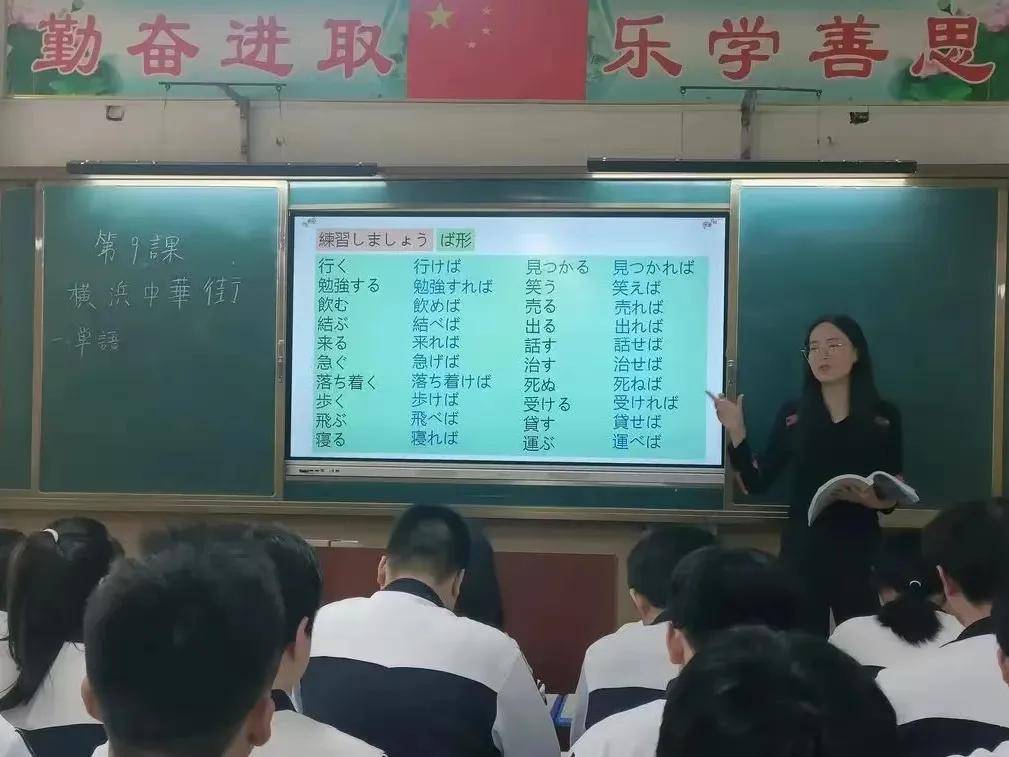 勤奋进取 乐学善思
第9課
横浜中華街
一.単語
練習しましょう ば形
行く 行けば 見つかる 見つかれば
勉強する 勉強すれば 笑う 笑えば
飲む 飲めば 売る 売れば
結ぶ 結べば 出る 出れば
来る 来れば 話す 話せば
急ぐ 急げば 治す 治せば
落ち着く 落ち着けば 死ぬ 死ねば
歩く 歩けば 受ける 受ければ
飛ぶ 飛べば 貸す 貸せば
寝る 寝れば 運ぶ 運べば